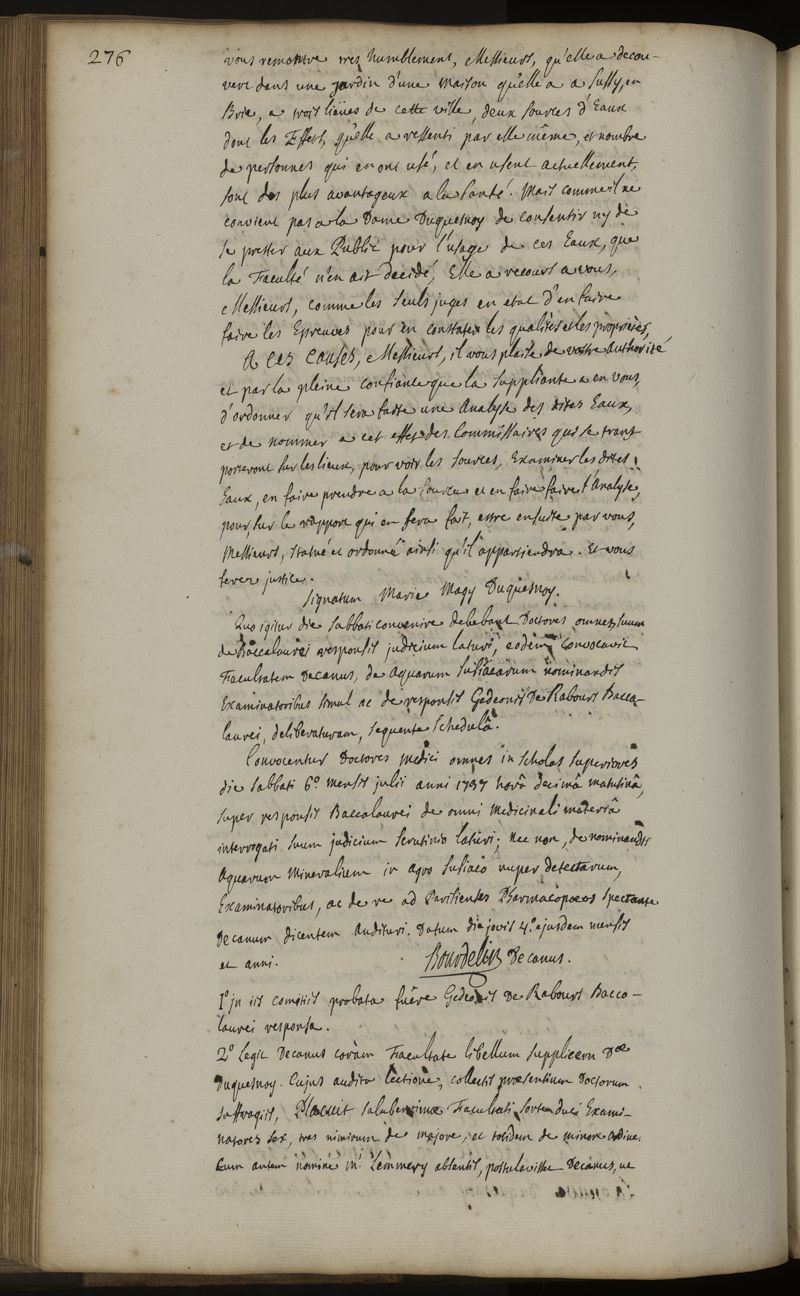 276
vous remontre tres humblement, Messieurs, qu'elle a decou-
vert dans une jardin d'une maison qu'elle a a Sussy, en
Brie, a trois lieües de cette ville, deux sources d'Eaux
dont les Effets, qu'elle a ressenti par elle même, et nombre
de personnes qui en ont usé, et en usent actuellement,
sont des plus avantageux a la santé. Mais comme il ne
convient pas a la Dame Duquesnoy de consentir ny de
se prester aux Public pour l'usage de ces Eaux, que
la Faculté n'en ait decidé, Elle a recours a vous,
Messieurs, comme les seuls juges en etat d'en faire
faire les Epreuves pour en constater les qualités et les proprietés,
A ces causes, Messieurs, il vous plaise de vostre authorité
et par la pleine confiance que la suppliante a en vous,
d'ordonner qu'il sera faite une Analyse des dites Eaux,
et de nommer a cet effet des Commissaires qui se trans-
porteront sur les lieux, pour voir les sources, Examiner les dites
Eaux, en faire prendre a la source et en faire faire l'Analyse,
pour, sur le rapport qui en sera fait, estre ensuite par vous,
Messieurs, statué et ordonné ainsi qu'il appartiendra. Et vous
ferez justice.
Signatum Marie Magy Duquesnoy.
Quo igitur die sabbati convenire debebant Doctores omnes, suum
de Baccalaurei responsis judicium laturi, eodem convocavit
Facultatem Decanus, de Aquarum Susiacarum nominandis
Examinatoribus simul ac de responsis Gedeonis De Rabours Bacca-
laurei, deliberaturam, sequente Schedulâ.
Convocentur Doctores Medici omnes in scholas superiores
die sabbati 6º. mensis julii anni 1737 horâ decimâ matutinâ,
super responsis Baccalaurei de omni medicinali materiâ
interrogati suum judicium scrutinio laturi; nec non, de nominandis
Aquarum Mineralium in agro Susiaco nuper detectarum,
Examinatoribus, ac de re ad Parisienses Pharmacopoeos spectante
Decanum dicentem audituri. Datum die jovis 4º. ejusdem mensis
et anni. Bourdelin Decanus.
1º jn iis comitiis probata fuêre Gedeonis De Rabours Bacca-
laurei responsa.
2º Legit Decanus coràm Facultate libellum supplicem Dae
Duquesnoy. Cujus auditâ lectione, collectis praesentium Doctorum
suffragiis, Placuit saluberrimae Facultati sorte duci Exami-
natores sex, tres nimirum de majore, et totidem de minore ordine.
Cum autem nomine Mi. Lemmery absentis, postulavisset Decanus, ut